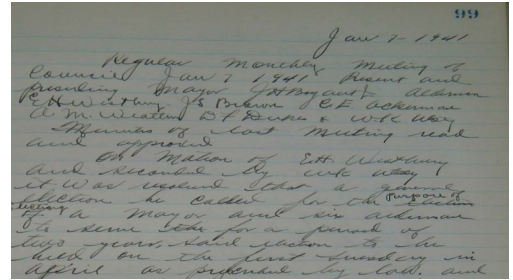 99
Jan 7 - 1941
Regular Monthly Meeting of
Council Jan 7 1941 Present and
presiding Mayor J H Bryant Jr Aldermen
E H Westbury J S Brown C E Ackerman
A M Weathers D F Dukes & W K Way
Minutes of last Meeting read
and approved
On Motion of E H Westbury
and seconded by W K Way
it was resolved that a general
election be called for the purpose of
electing
of a Mayor and six aldermen
to serve the for a period of
two years. Said election to be
held on the first Tuesday in
April as provided by law and